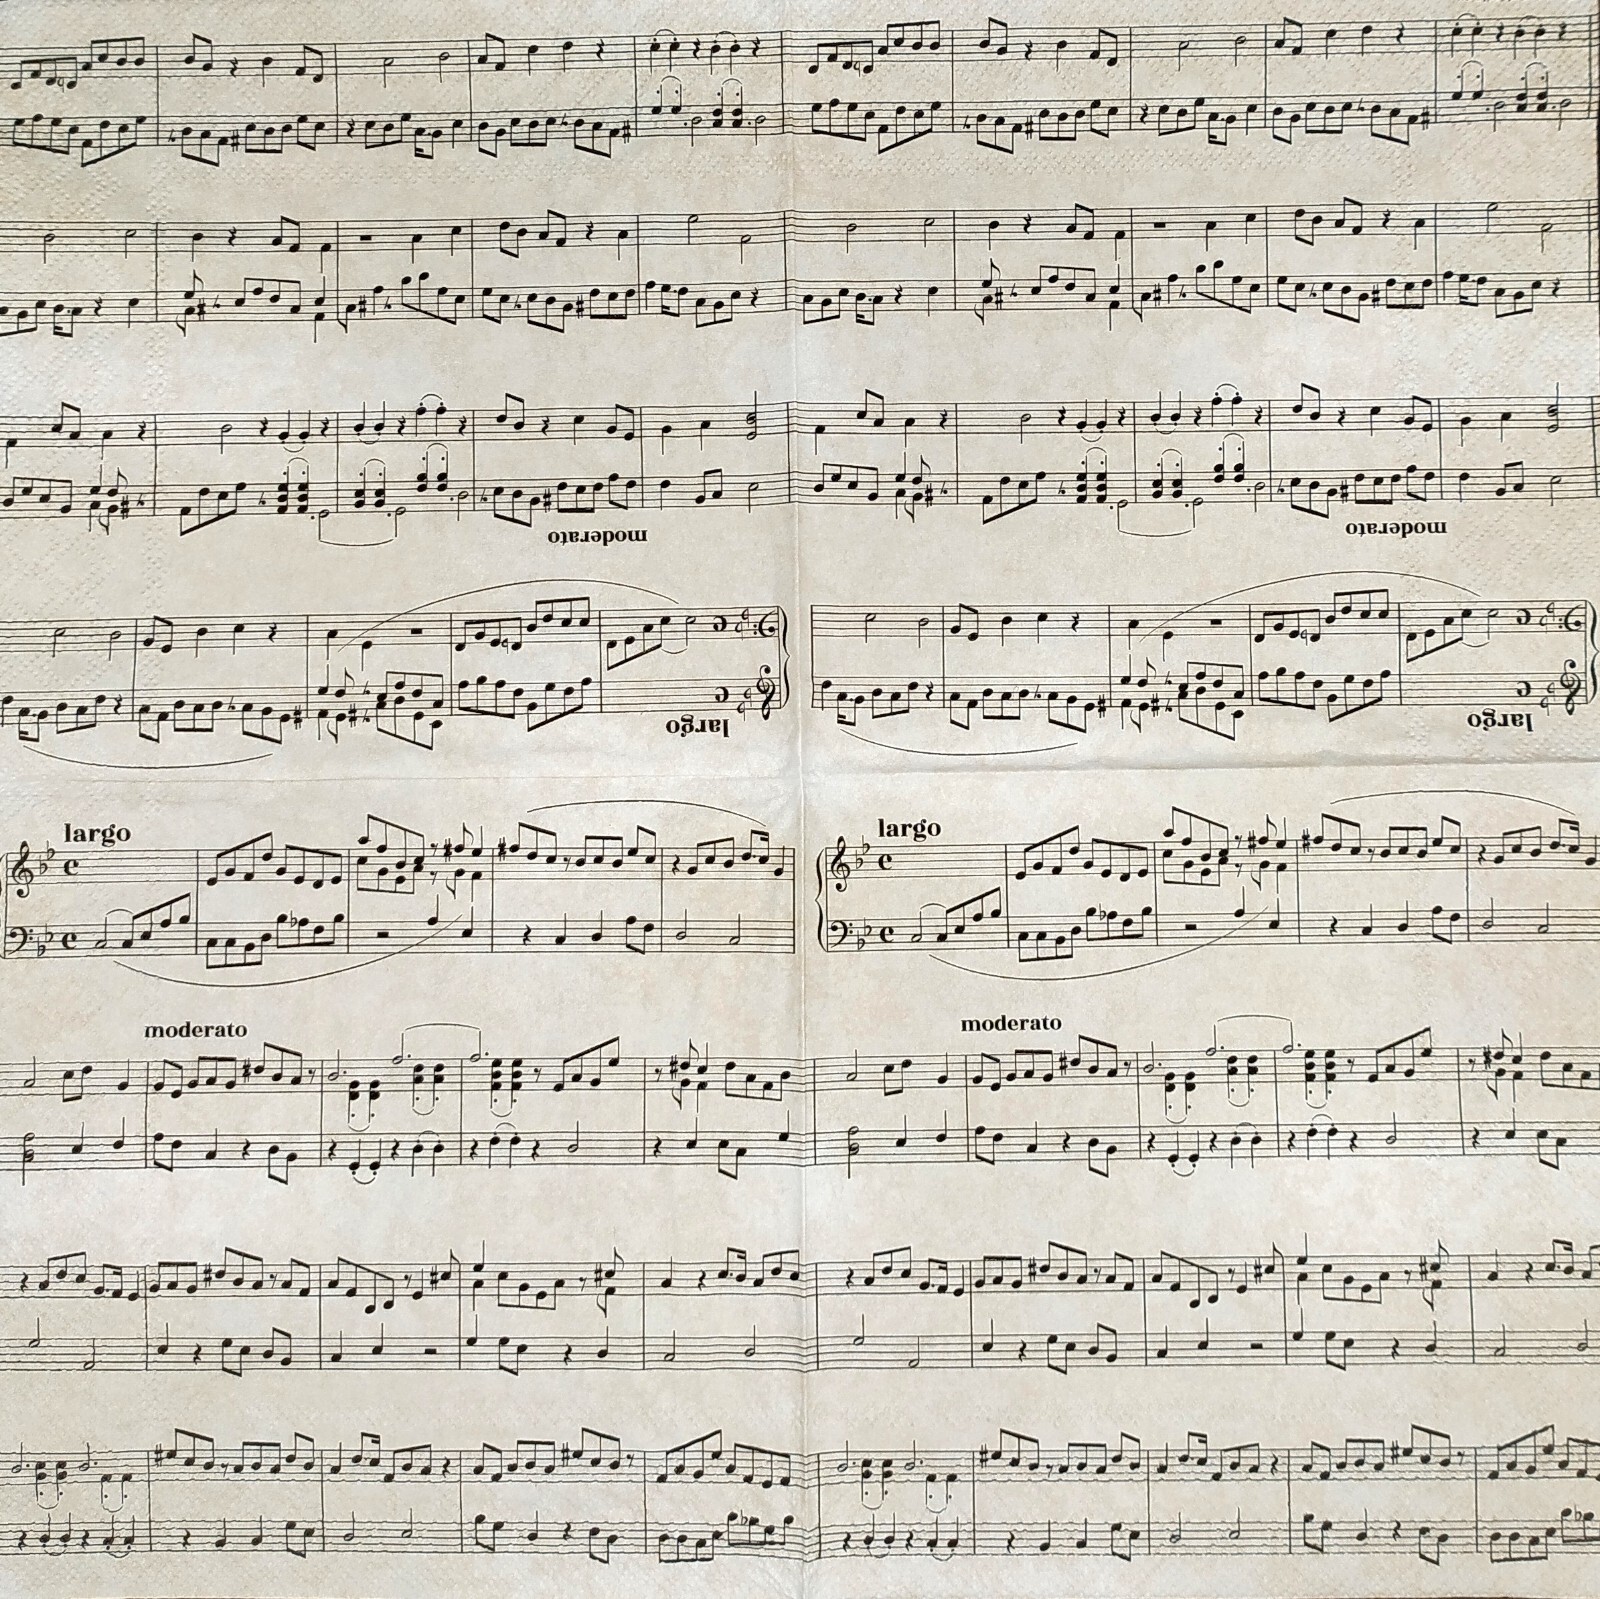 moderato moderato
largo largo
largo largo
moderato moderato